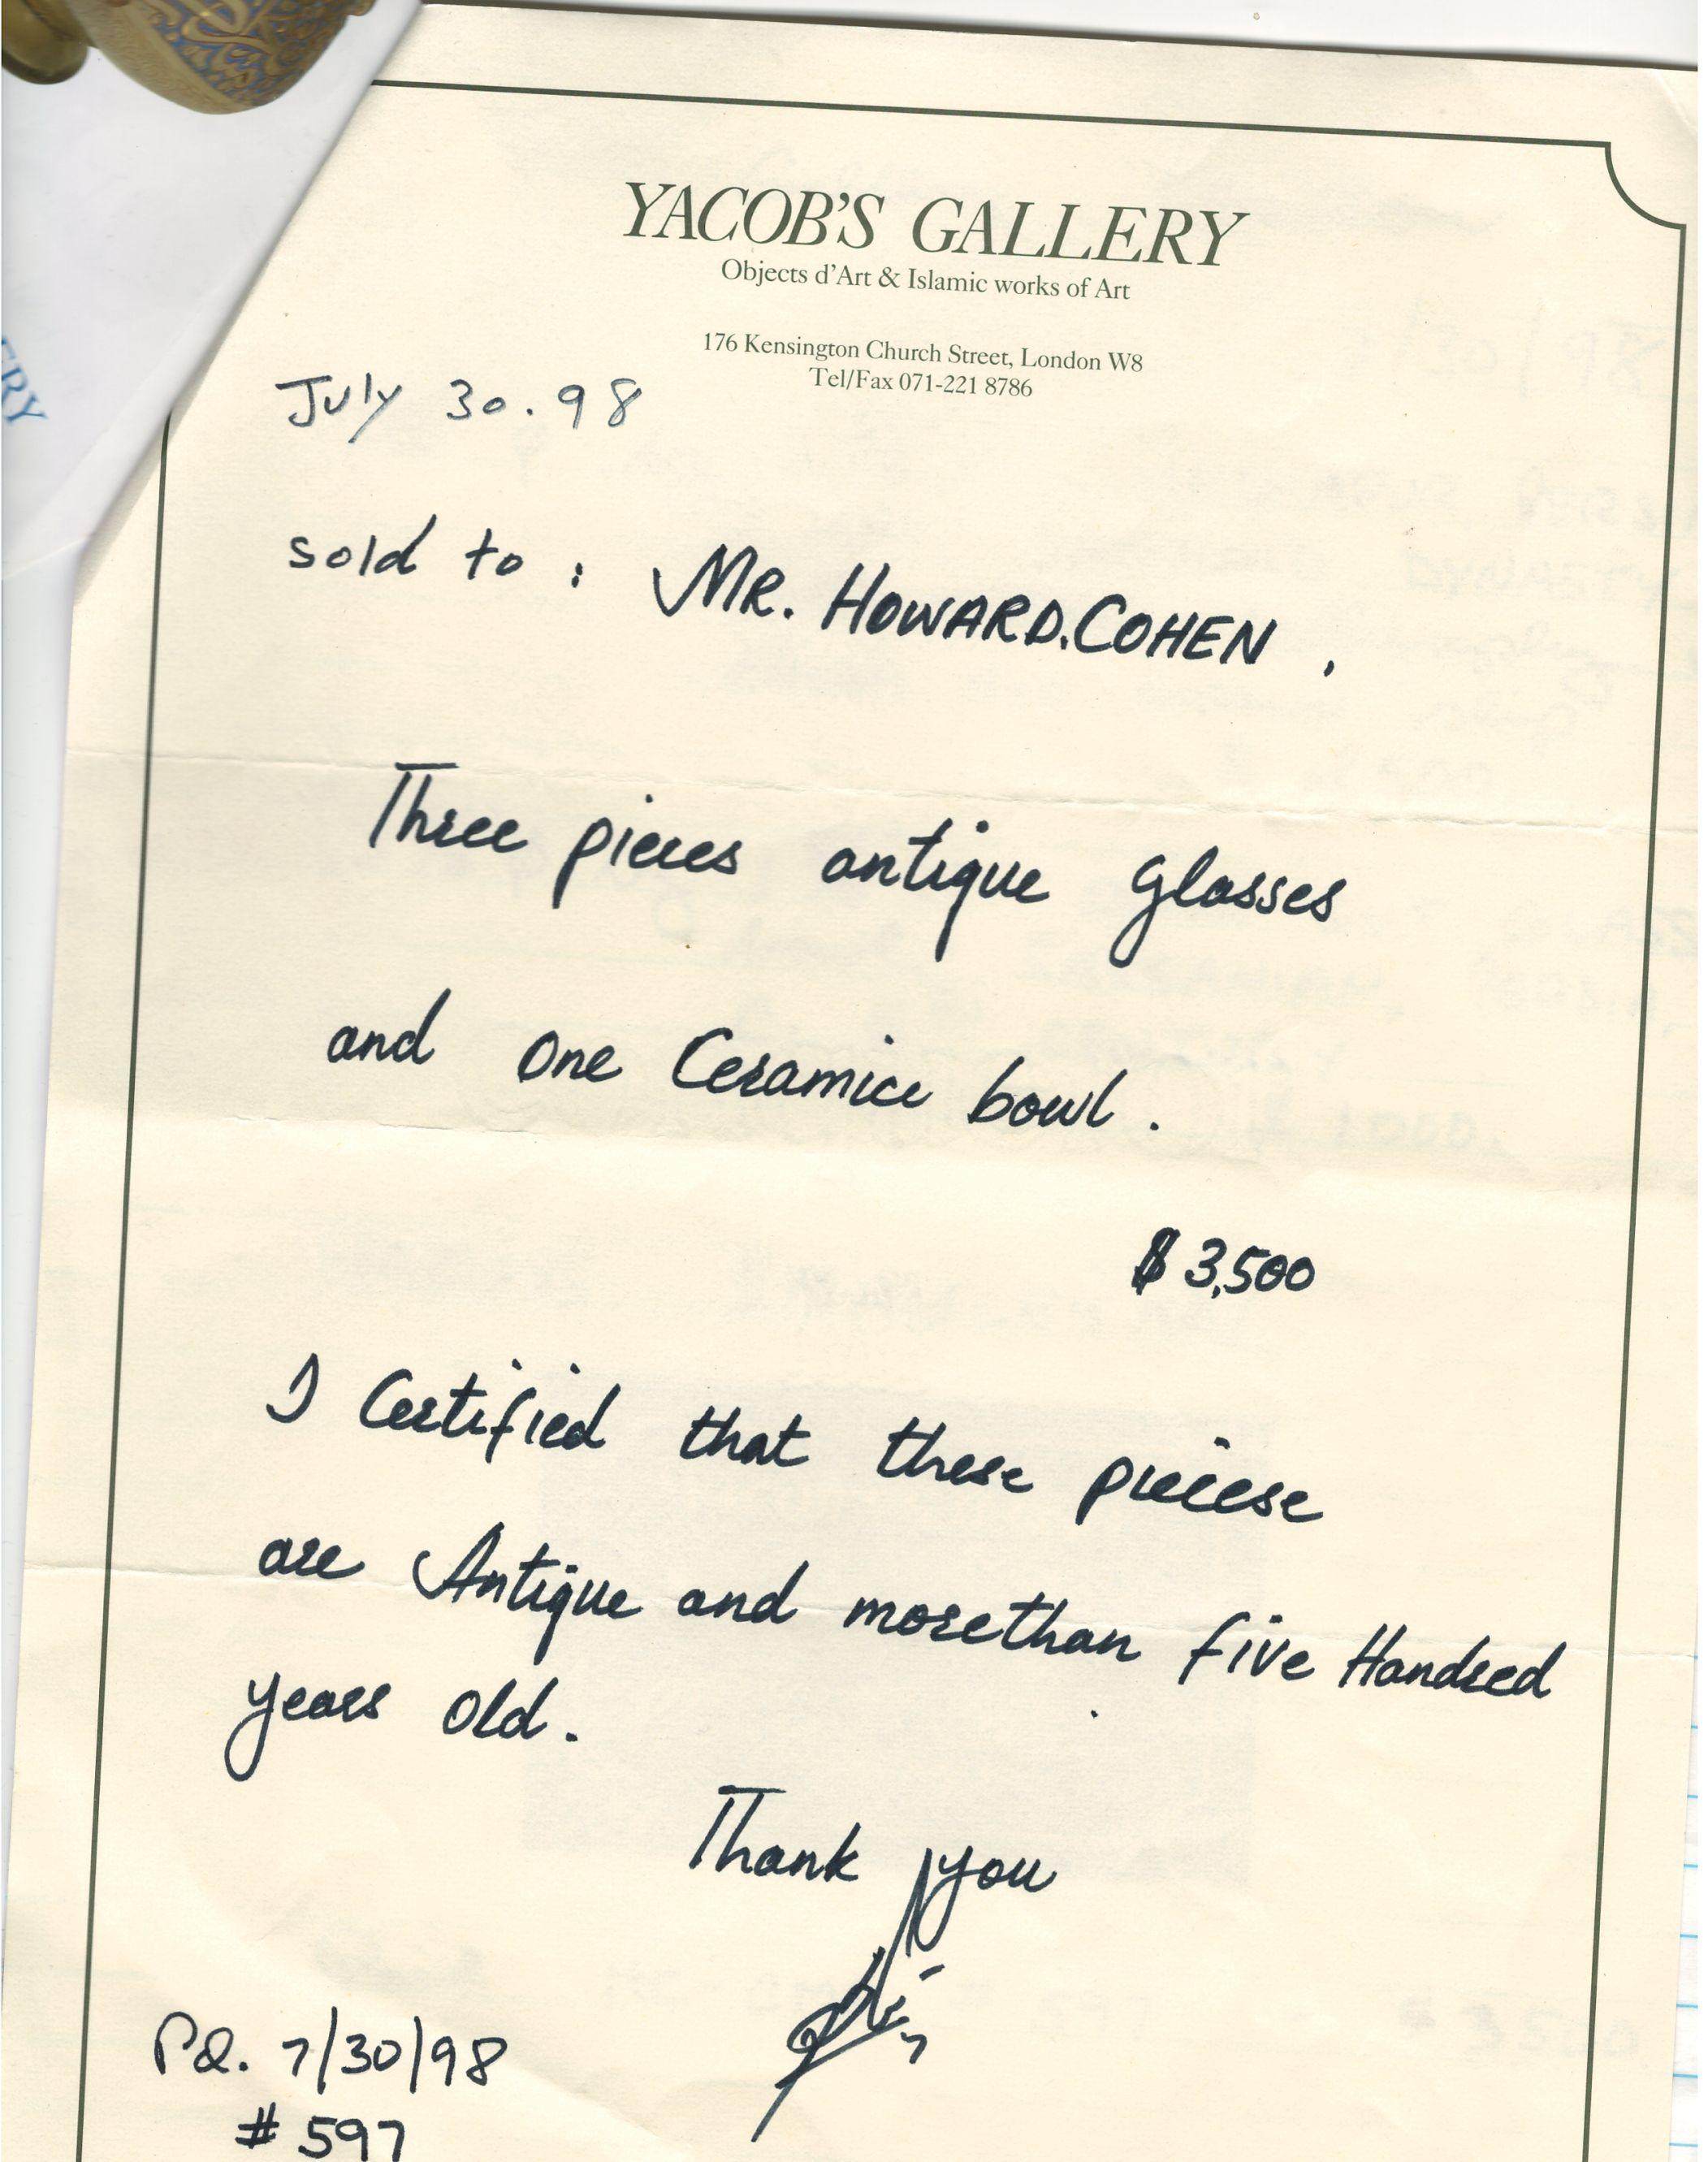 YACOB'S GALLERY
Objects d'Art & Islamic works of Art
176 Kensington Church Street, London W8
Tel/Fax 071-221 8786
July 30.98
sold to : MR. HOWARD.COHEN .
Three pieces antique glasses
and one Ceramice bowl .
$ 3,500
I Certified that these pieiese
are Antique and morethan five Handred
years old.
Thank you
Pd. 7/30/98
# 597
ERY